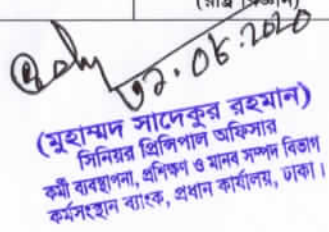 ৩১.০৮.২০২০
(মুহাম্মদ সাদেকুর রহমান)
সিনিয়র প্রিন্সিপাল অফিসার
কর্মী ব্যবস্থাপনা, প্রশিক্ষণ ও মানব সম্পদ বিভাগ
কর্মসংস্থান ব্যাংক, প্রধান কার্যালয়, ঢাকা।